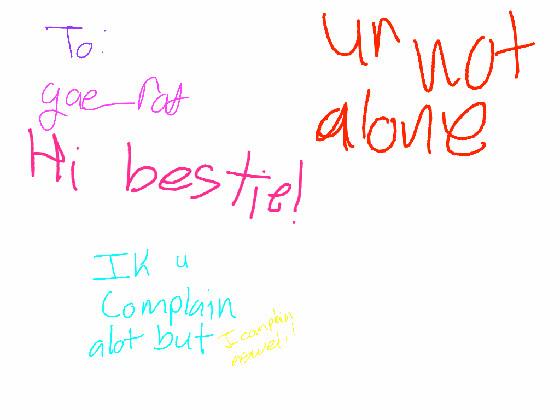 To:
gae_rat
Hi bestie!
Ik u
Complain
alot but
I complain
ur not
alone